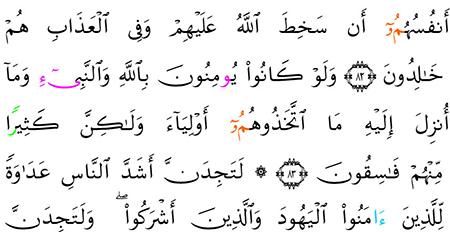 أَنفُسُهُمُۥٓ أَن سَخِطَ ٱللَّهُ عَلَيْهِمْ وَفِى ٱلْعَذَابِ هُمْ
خَٰلِدُونَ ۝٨٢ وَلَوْ كَانُوا۟ يُومِنُونَ بِٱللَّهِ وَٱلنَّبِىٓءِ وَمَآ
أُنزِلَ إِلَيْهِ مَا ٱتَّخَذُوهُمُۥٓ أَوْلِيَآءَ وَلَٰكِنَّ كَثِيرًا
مِّنْهُمْ فَٰسِقُونَ ۝٨٣ ۞ لَتَجِدَنَّ أَشَدَّ ٱلنَّاسِ عَدَٰوَةً
لِّلَّذِينَ ءَامَنُوا۟ ٱلْيَهُودَ وَٱلَّذِينَ أَشْرَكُوا۟ۖ وَلَتَجِدَنَّ